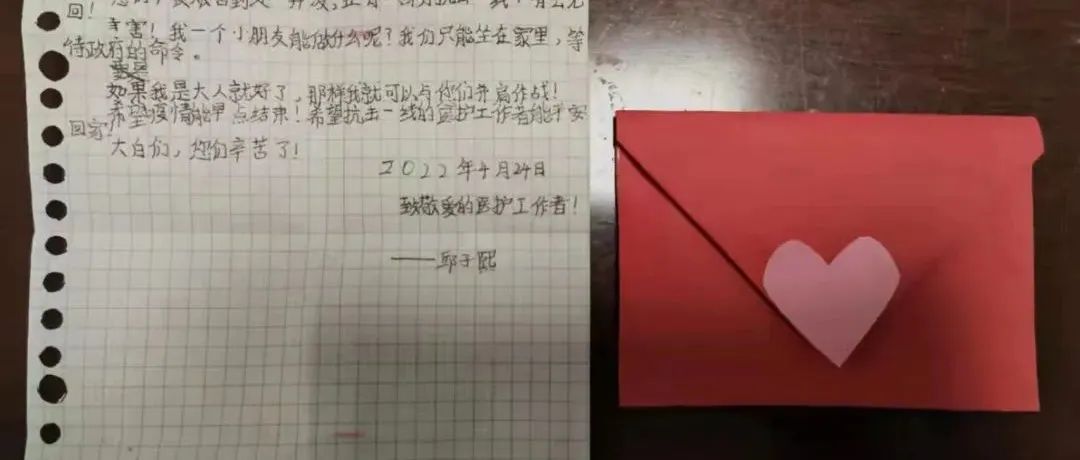 回！
辛害！我一个小朋友能做什么呢？我们只能坐在家里，等
待政府的命令。
如果我是大人就好了，那样我就可以点你们并肩作战！
希望疫情能早点结束！希望抗击一线的医护工作者能平安
回家
大白们，您们辛苦了！
2022年4月24日
致敬爱的医护工作者！
——邱子熙